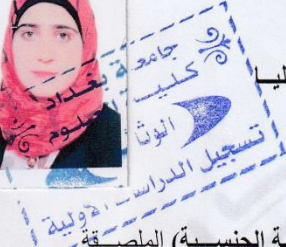 جامعة بغداد
كلية العلوم
الوثائق
تسجيل الدراسات الاولية
ليا
ة الجنسية) الملصقة